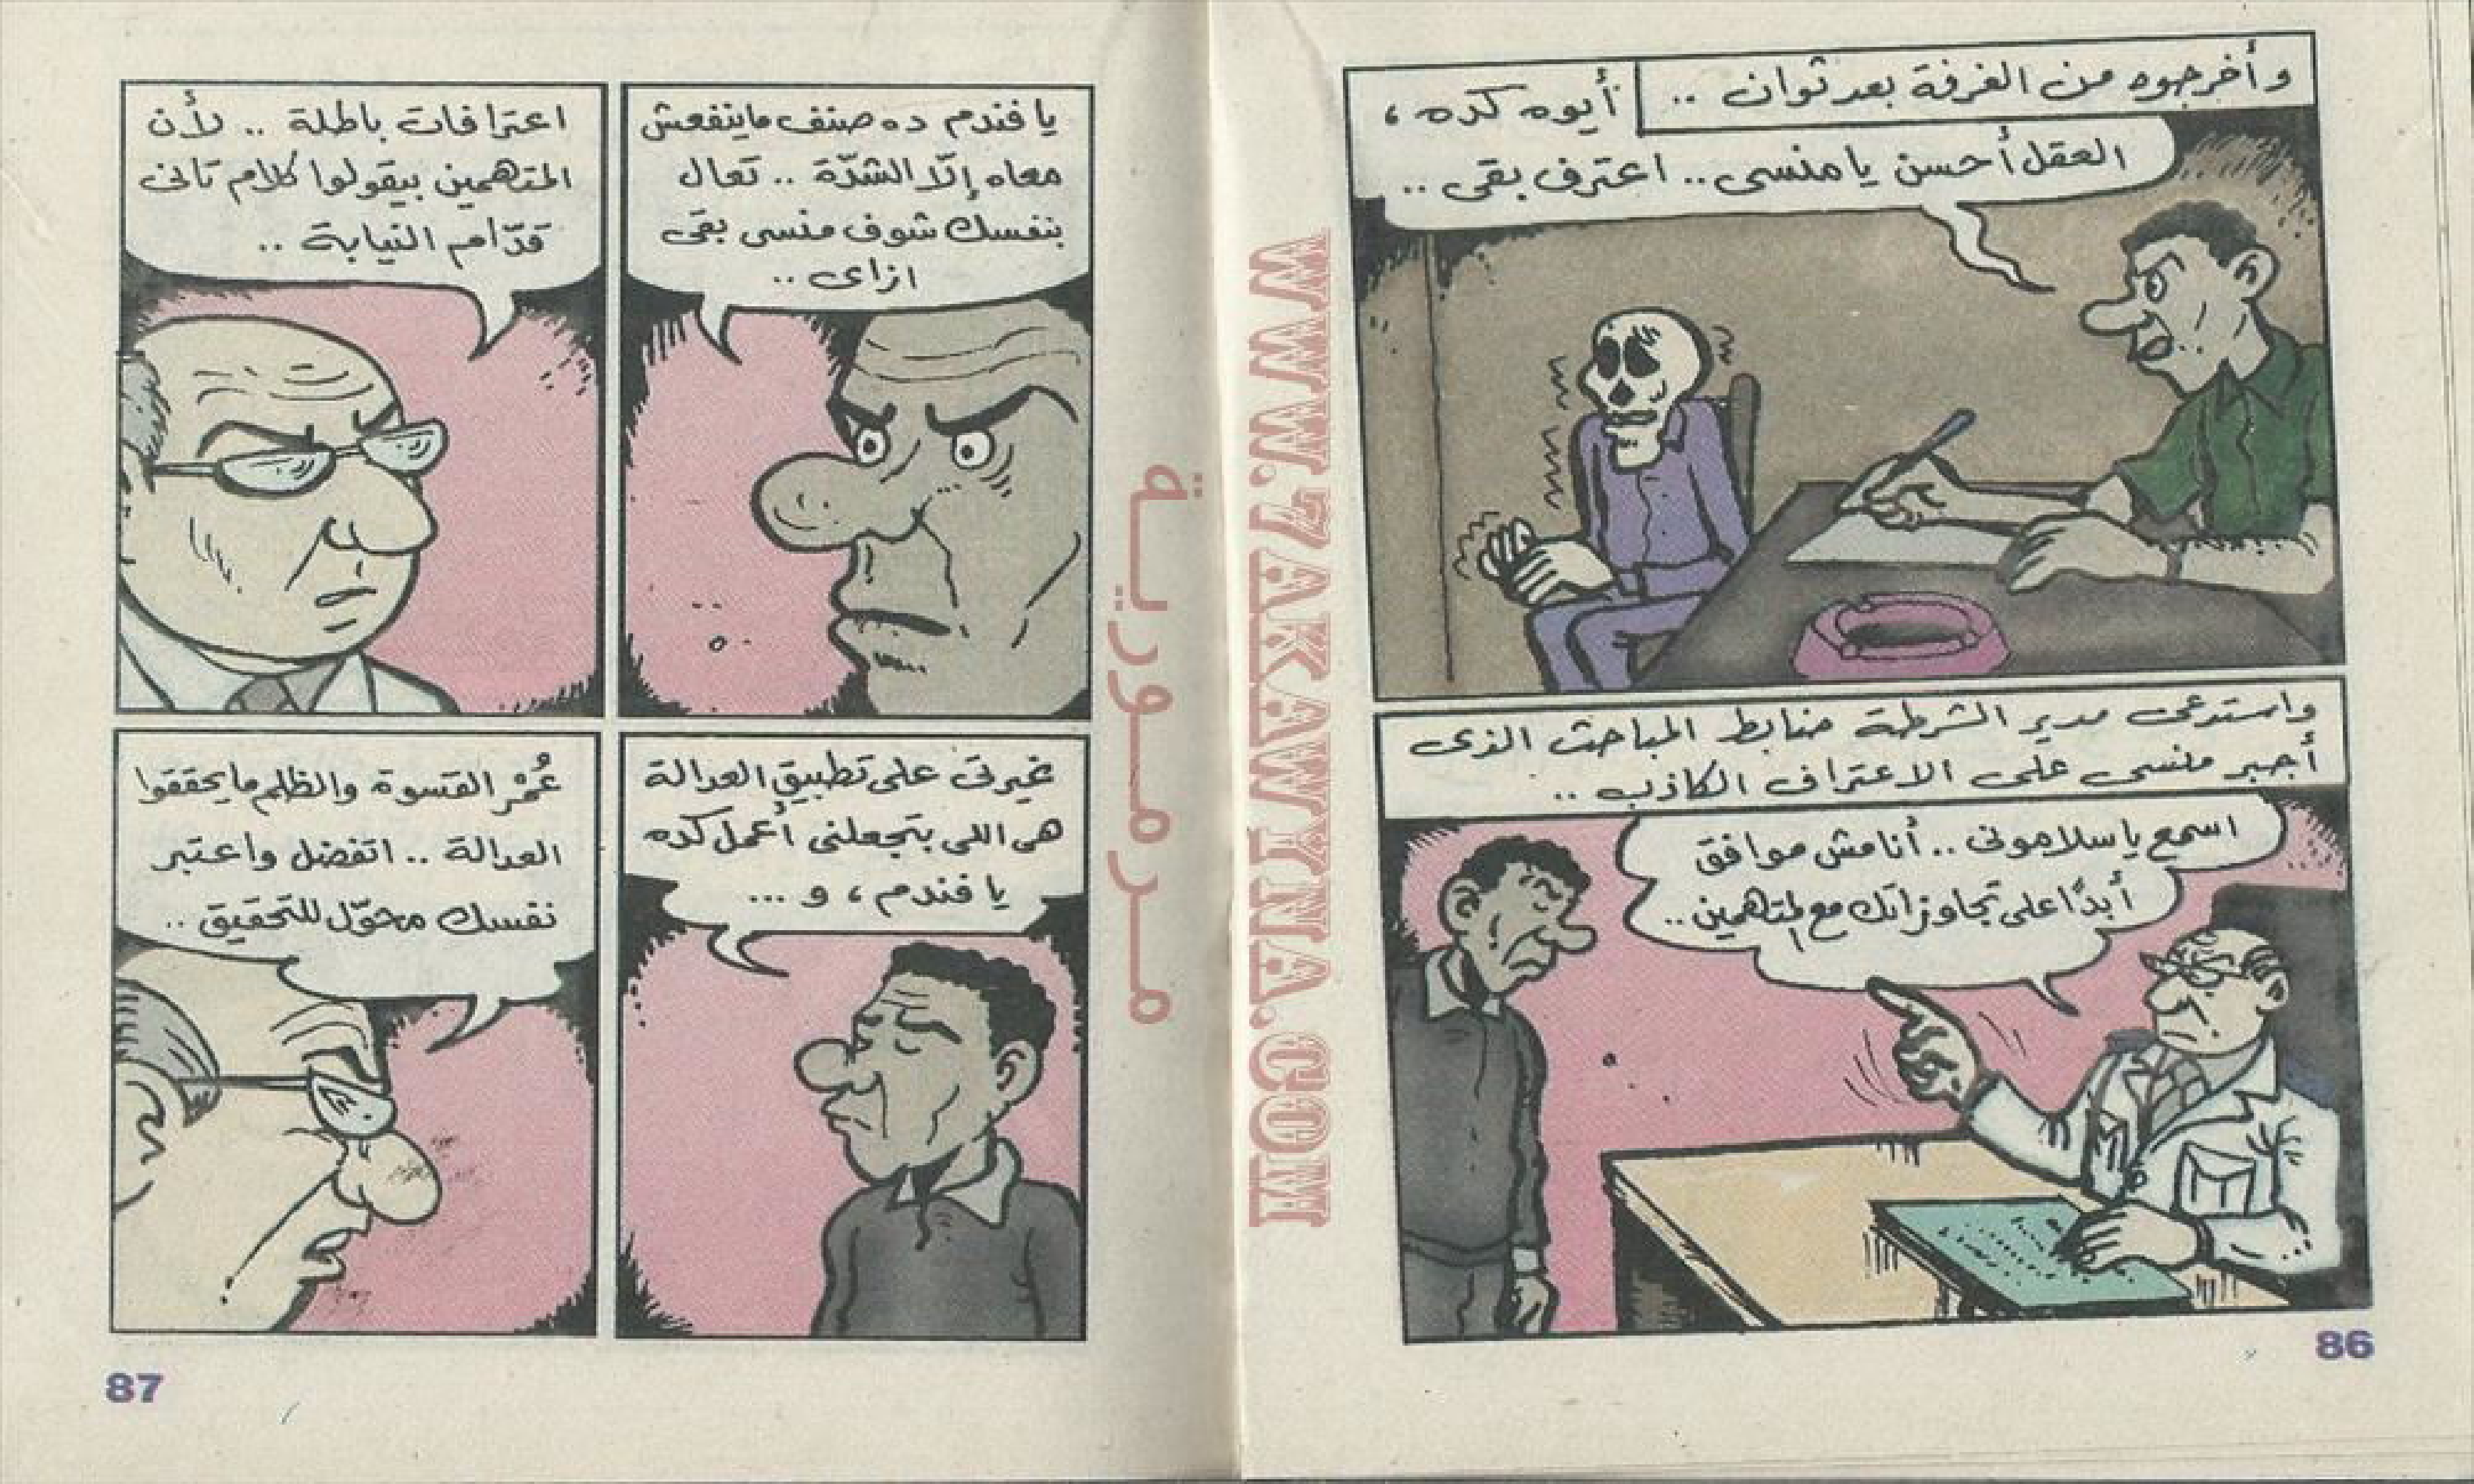 وأخرجوه من الغرفة بعد ثوان ..
أيوه كده،
العقل أحسن يا منسى.. اعترف بقى ..
واستدعى مدير الشرطة ضابط المباحث الذى
أجبر منسى على الاعتراف الكاذب ..
اسمع يا سلامونى .. أنا مش موافق
أبدًا على تجاوزاتك مع المتهمين ..
86
WWW.7AKAWYNA.COM
مرمورية
يا فندم ده صنف ماينفعش
معاه إلّا الشدّة .. تعال
بنفسك شوف منسى بقى
ازاى ..
اعترافات باطلة .. لأن
المتهمين بيقولوا كلام تانى
قدّام النيابة ..
غيرتى على تطبيق العدالة
هى اللى بتجعلنى أعمل كده
يا فندم، و ...
عُمْر القسوة والظلم ما يحققوا
العدالة .. اتفضل واعتبر
نفسك محوّل للتحقيق ..
87